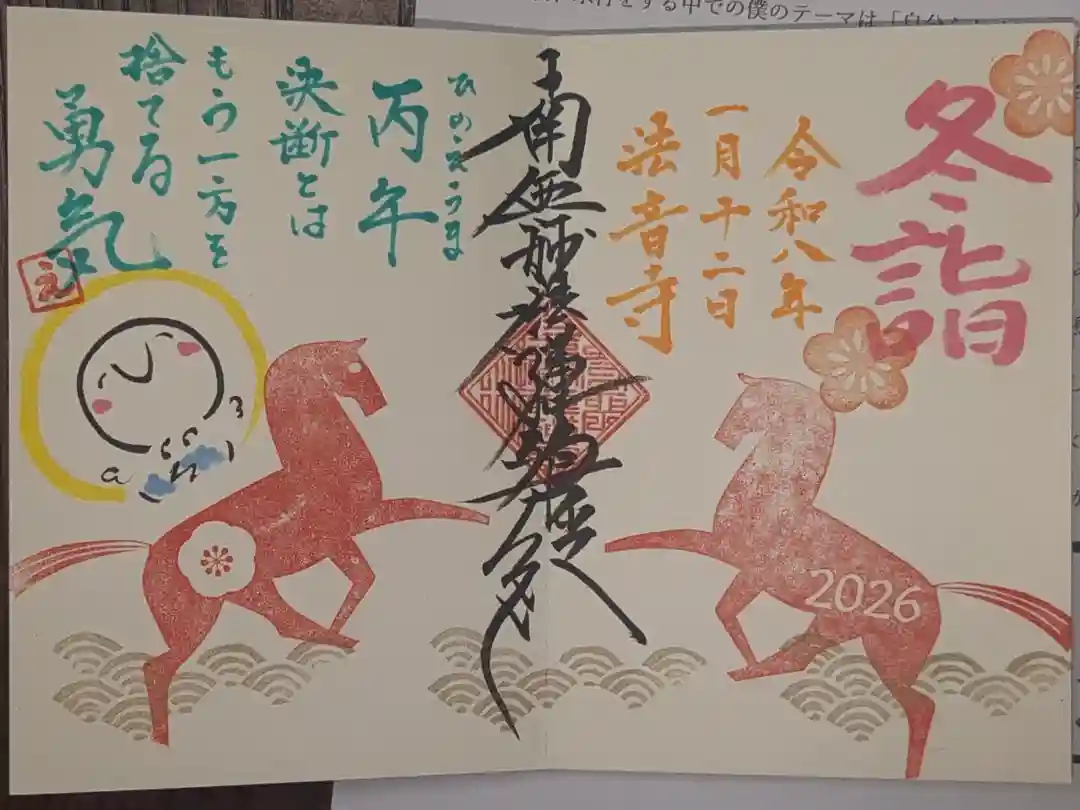 冬詣
令和八年
一月十二日
法音寺
南無妙法蓮華
ひのえうま
丙午
決断とは
もう一方を
捨てる
勇気
え
2026
をする中での僕のテーマは「自分